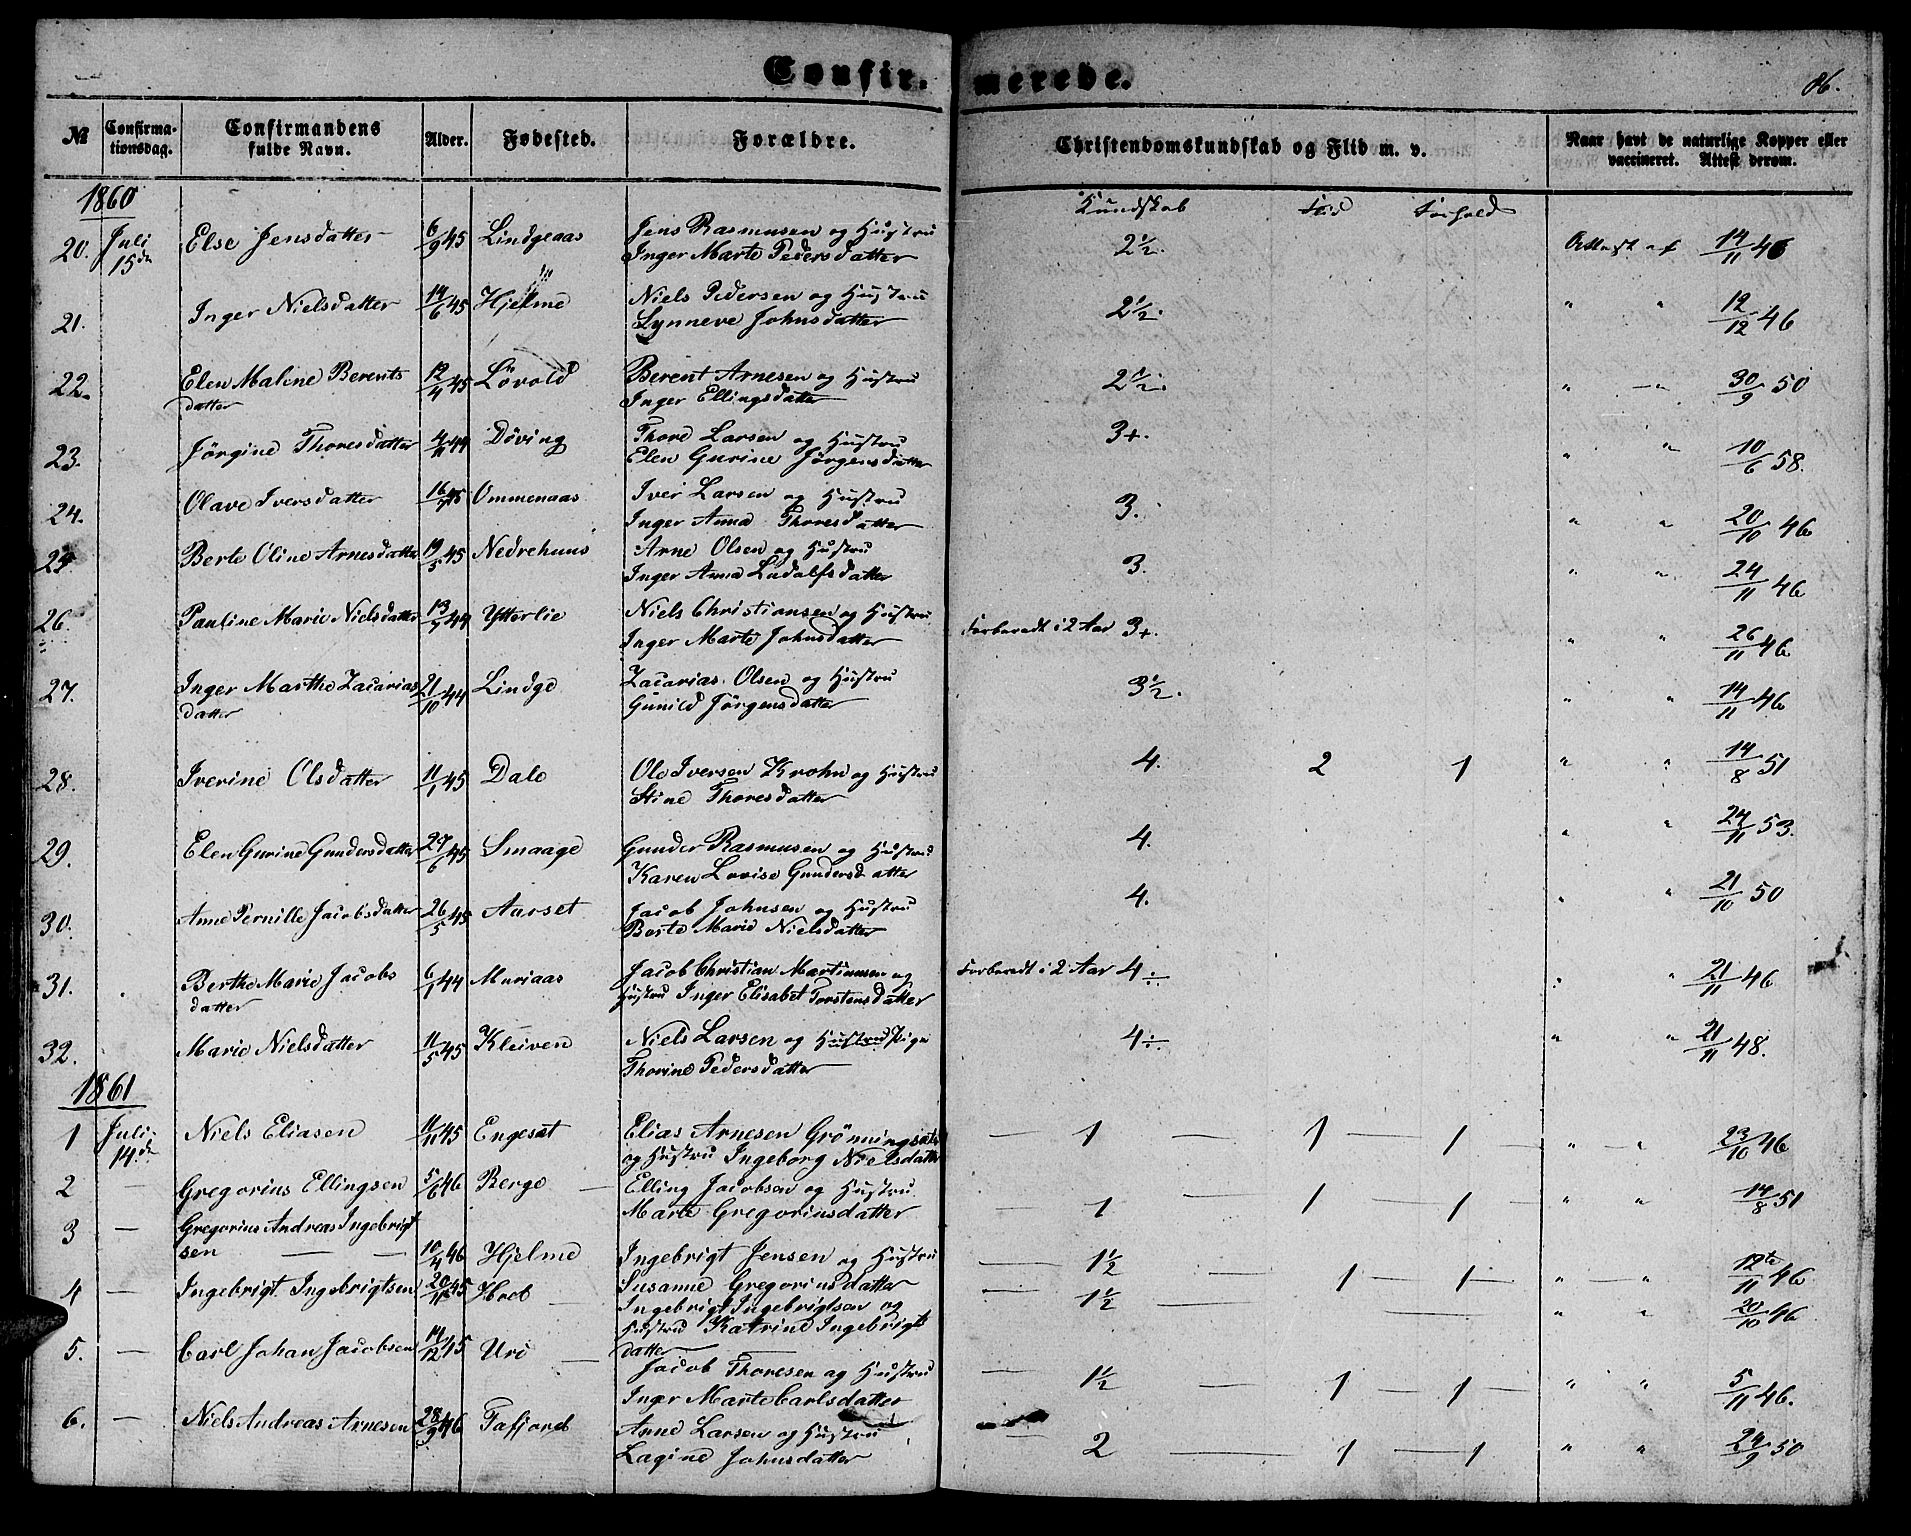 Confir- merede. 86.
№ Confirma-tionsdag. Confirmandens fulde Navn. Alder. Fødested. Forældre. Christendomskundskab og Flid m. v. Naar havt de naturlige Kopper eller vaccineret. Attest derom.
1860 Kundskab Flid Forhold
20. Juli 15de Else Jensdatter 6/9 45 Lindgeaas Jens Rasmusen og Hustru 2½. Attest af 14/11 46
Inger Marte Pedersdatter
21. Inger Nielsdatter 14/6 45 Hjelme Niels Pedersen og Hustru 2½. " " 12/12 46
Lynneve Johnsdatter
22. Elen Maline Berents 12/4 45 Lövold Berent Arnesen og Hustru 2½. " " 30/9 50
datter Inger Ellingsdatter
23. Jörgine Thoresdatter 4/11 44 Döving Thore Larsen og Hustru 3+. " " 10/6 58.
Elen Gurine Jörgensdatter
24. Olave Iversdatter 16/7 45 Ommenaas Iver Larsen og Hustru 3. " " 20/10 46
Inger Anna Thoresdatter
25 Berte Oline Arnesdatter 19/5 45 Nedrehuus Arne Olsen og Hustru 3. " " 24/11 46
Inger Anna Ludalfsdatter
26. Pauline Marie Nielsdatter 13/7 44 Ytterlie Niels Christiansen og Hustru Forberedt i 2 Aar 3+. " " 26/11 46
Inger Marte Johnsdatter
27. Inger Marthe Zacarias 21/10 44 Lindge Zacarias Olsen og Hustru 3½. " " 14/11 46
datter Gunild Jörgensdatter
28. Iverine Olsdatter 11/1 45 Dale Ole Iversen Krohn og Hustru 4. 2 1 " " 14/8 51
Stine Thoresdatter
29. Elen Gurine Gundersdatter 27/6 45 Smaage Gunder Rasmusen og Hustru 4. " " 24/11 53.
Karen Lovise Gundersdatter
30. Anne Pernille Jacobsdatter 26/5 45 Aarset Jacob Johnsen og Hustru 4. " " 21/10 50
Berte Marie Nielsdatter
31. Berthe Marie Jacobs 6/1 44 Muriaas Jacob Christian Martinusen og Forberedt i 2 Aar 4÷. " " 21/11 46
datter Hustru Inger Elisabet Torstensdatter
32. Marie Nielsdatter 11/5 45 Kleiven Niels Larsen og Hustru Pige 4÷. " " 21/11 48.
Thorine Pedersdatter
1861
1 Juli 14de Niels Eliasen 11/11 45 Engeset Elias Arnesen Grönningsæter — 1 — 1 — 1 — " " 23/10 46
og Hustru Ingeborg Nielsdatter
2 — Gregorius Ellingsen 5/6 46 Berge — Elling Jacobsen og Hustru 1 — 1 — 1 " " 14/8 51
Marte Gregoriusdatter
3 — Gregorius Andreas Ingebrigt
sen — — 10/4 46 Hjelme Ingebrigt Jensen og Hustru — 1½ — 1 — 1 — " — " 12te/11 46
Susanne Gregoriusdatter
4 — Ingebrigt Ingebrigtsen 20/11 45 — Ingebrigt Ingebrigtsen og — 1½ — " " 20/10 46
Hustru Katrine Ingebrigts
datter
5. — Carl Johan Jacobsen 14/12 45 Uri — Jacob Thoresen og Hustru — 1½ — 1 — 1 — " " 5/11 46.
Inger Marte Carlsdatter
6. — Niels Andreas Arnesen 28/9 46 Tafjord Arne Larsen og Hustru 2 — 1 — 1 " " 24/9 50
Lagine Johnsdatter